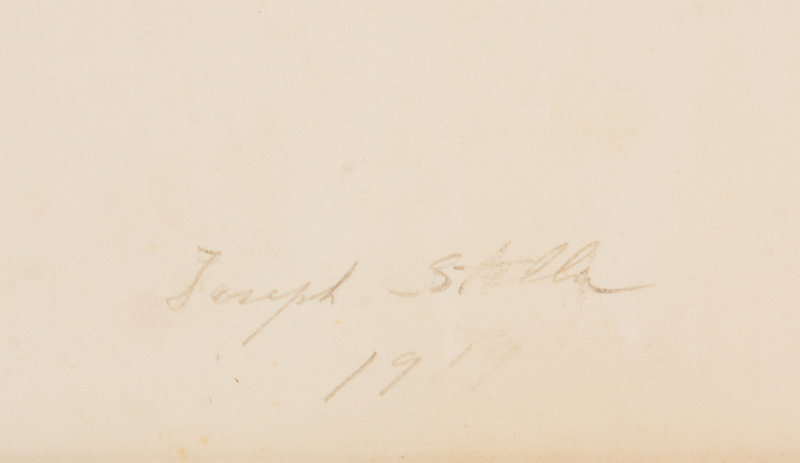 Joseph Stella
1917